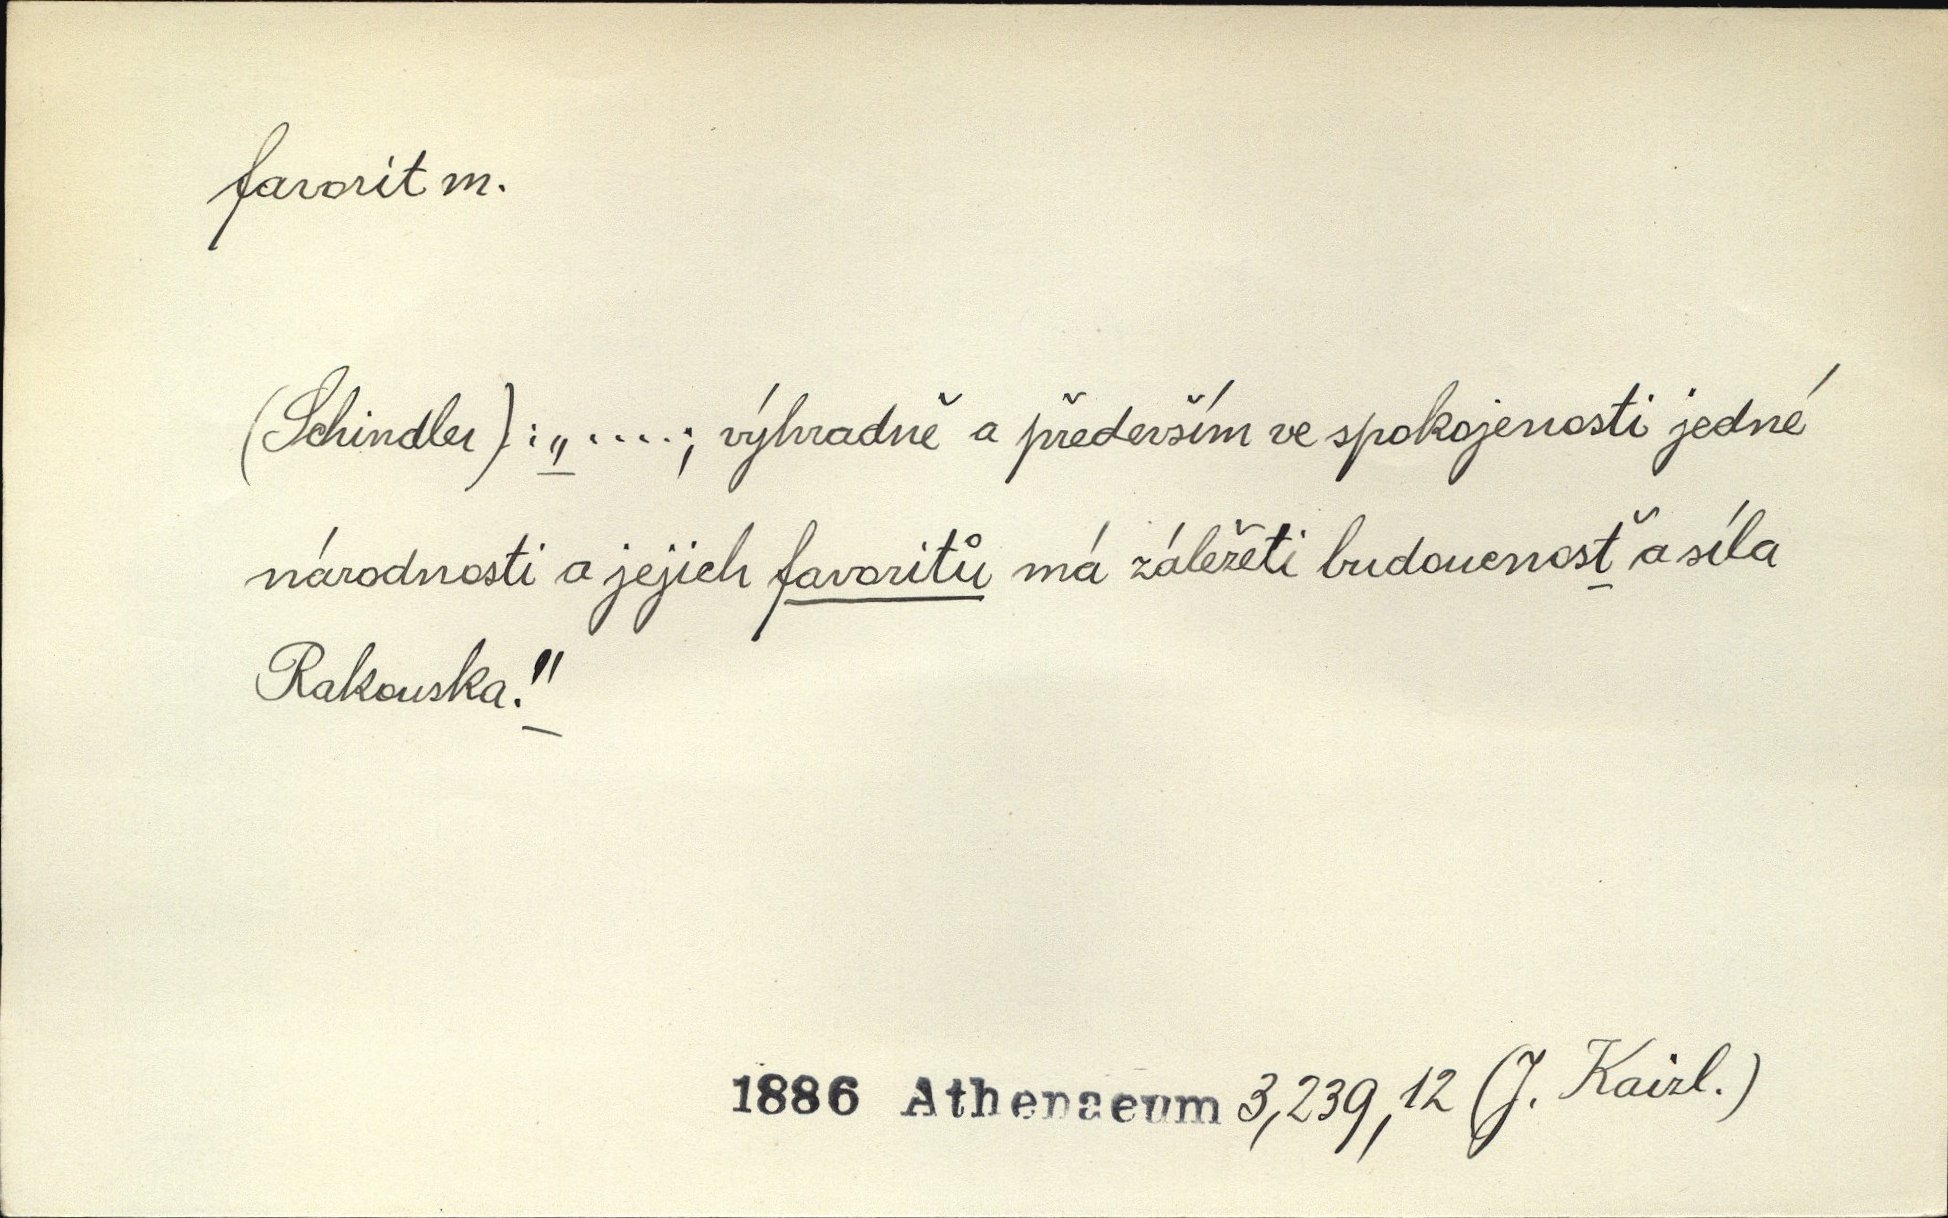 favorit m.
(Schindler) : „ ....; výhradně a především ve spokojenosti jedné
národnosti a jejich favoritů má záležeti budoucnosť a síla
Rakouska."
1886 Athenaeum 3,239,12 (J. Kaizl.)